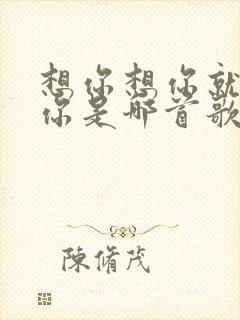 想你想你就
你是哪首歌
陳脩茂